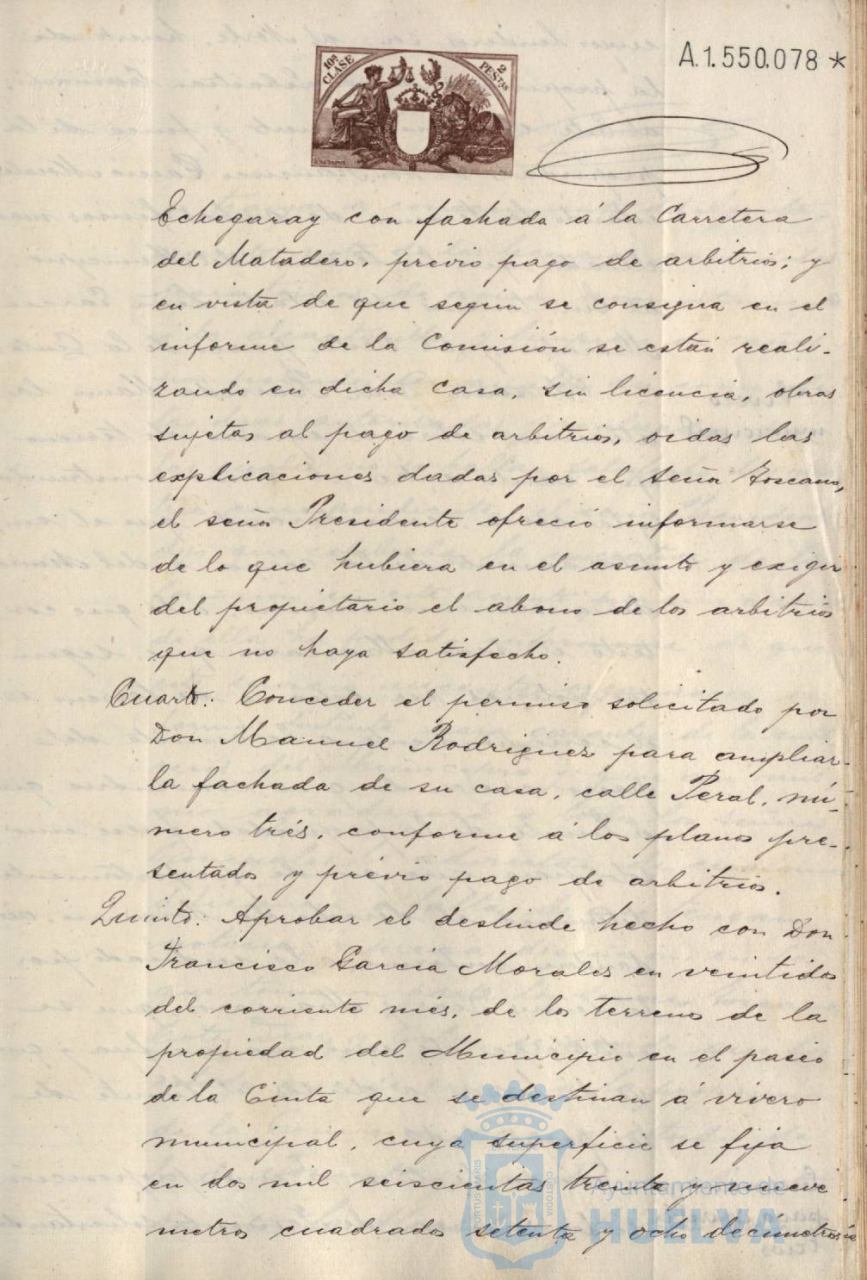 10ª CLASE
2 PESETAS
A.1.550.078 *
Echegaray con fachada á la Carretera
del Matadero, prévio pago de arbitrios; y
en vista de que según se consigna en el
informe de la Comisión se están reali-
zando en dicha casa, sin licencia, obras
sujetas al pago de arbitrios, oidas las
explicaciones dadas por el señor Toscano,
el señor Presidente ofreció informarse
de lo que hubiera en el asunto y exigir
del propietario el abono de los arbitrios
que no haya satisfecho.
Cuarto: Conceder el permiso solicitado por
Don Manuel Rodriguez para ampliar
la fachada de su casa, calle Peral, nú-
mero trés, conforme á los planos pre-
sentados y prévio pago de arbitrios.
Quinto: Aprobar el deslinde hecho con Don
Francisco García Morales en veintidos
del corriente més, de los terrenos de la
propiedad del Municipio en el paseo
de la Cinta que se destinan á vivero
municipal, cuya superficie se fija
en dos mil seiscientas treinta y nueve
metros cuadrados setenta y ocho decímetros
Ayuntamiento de
HUELVA